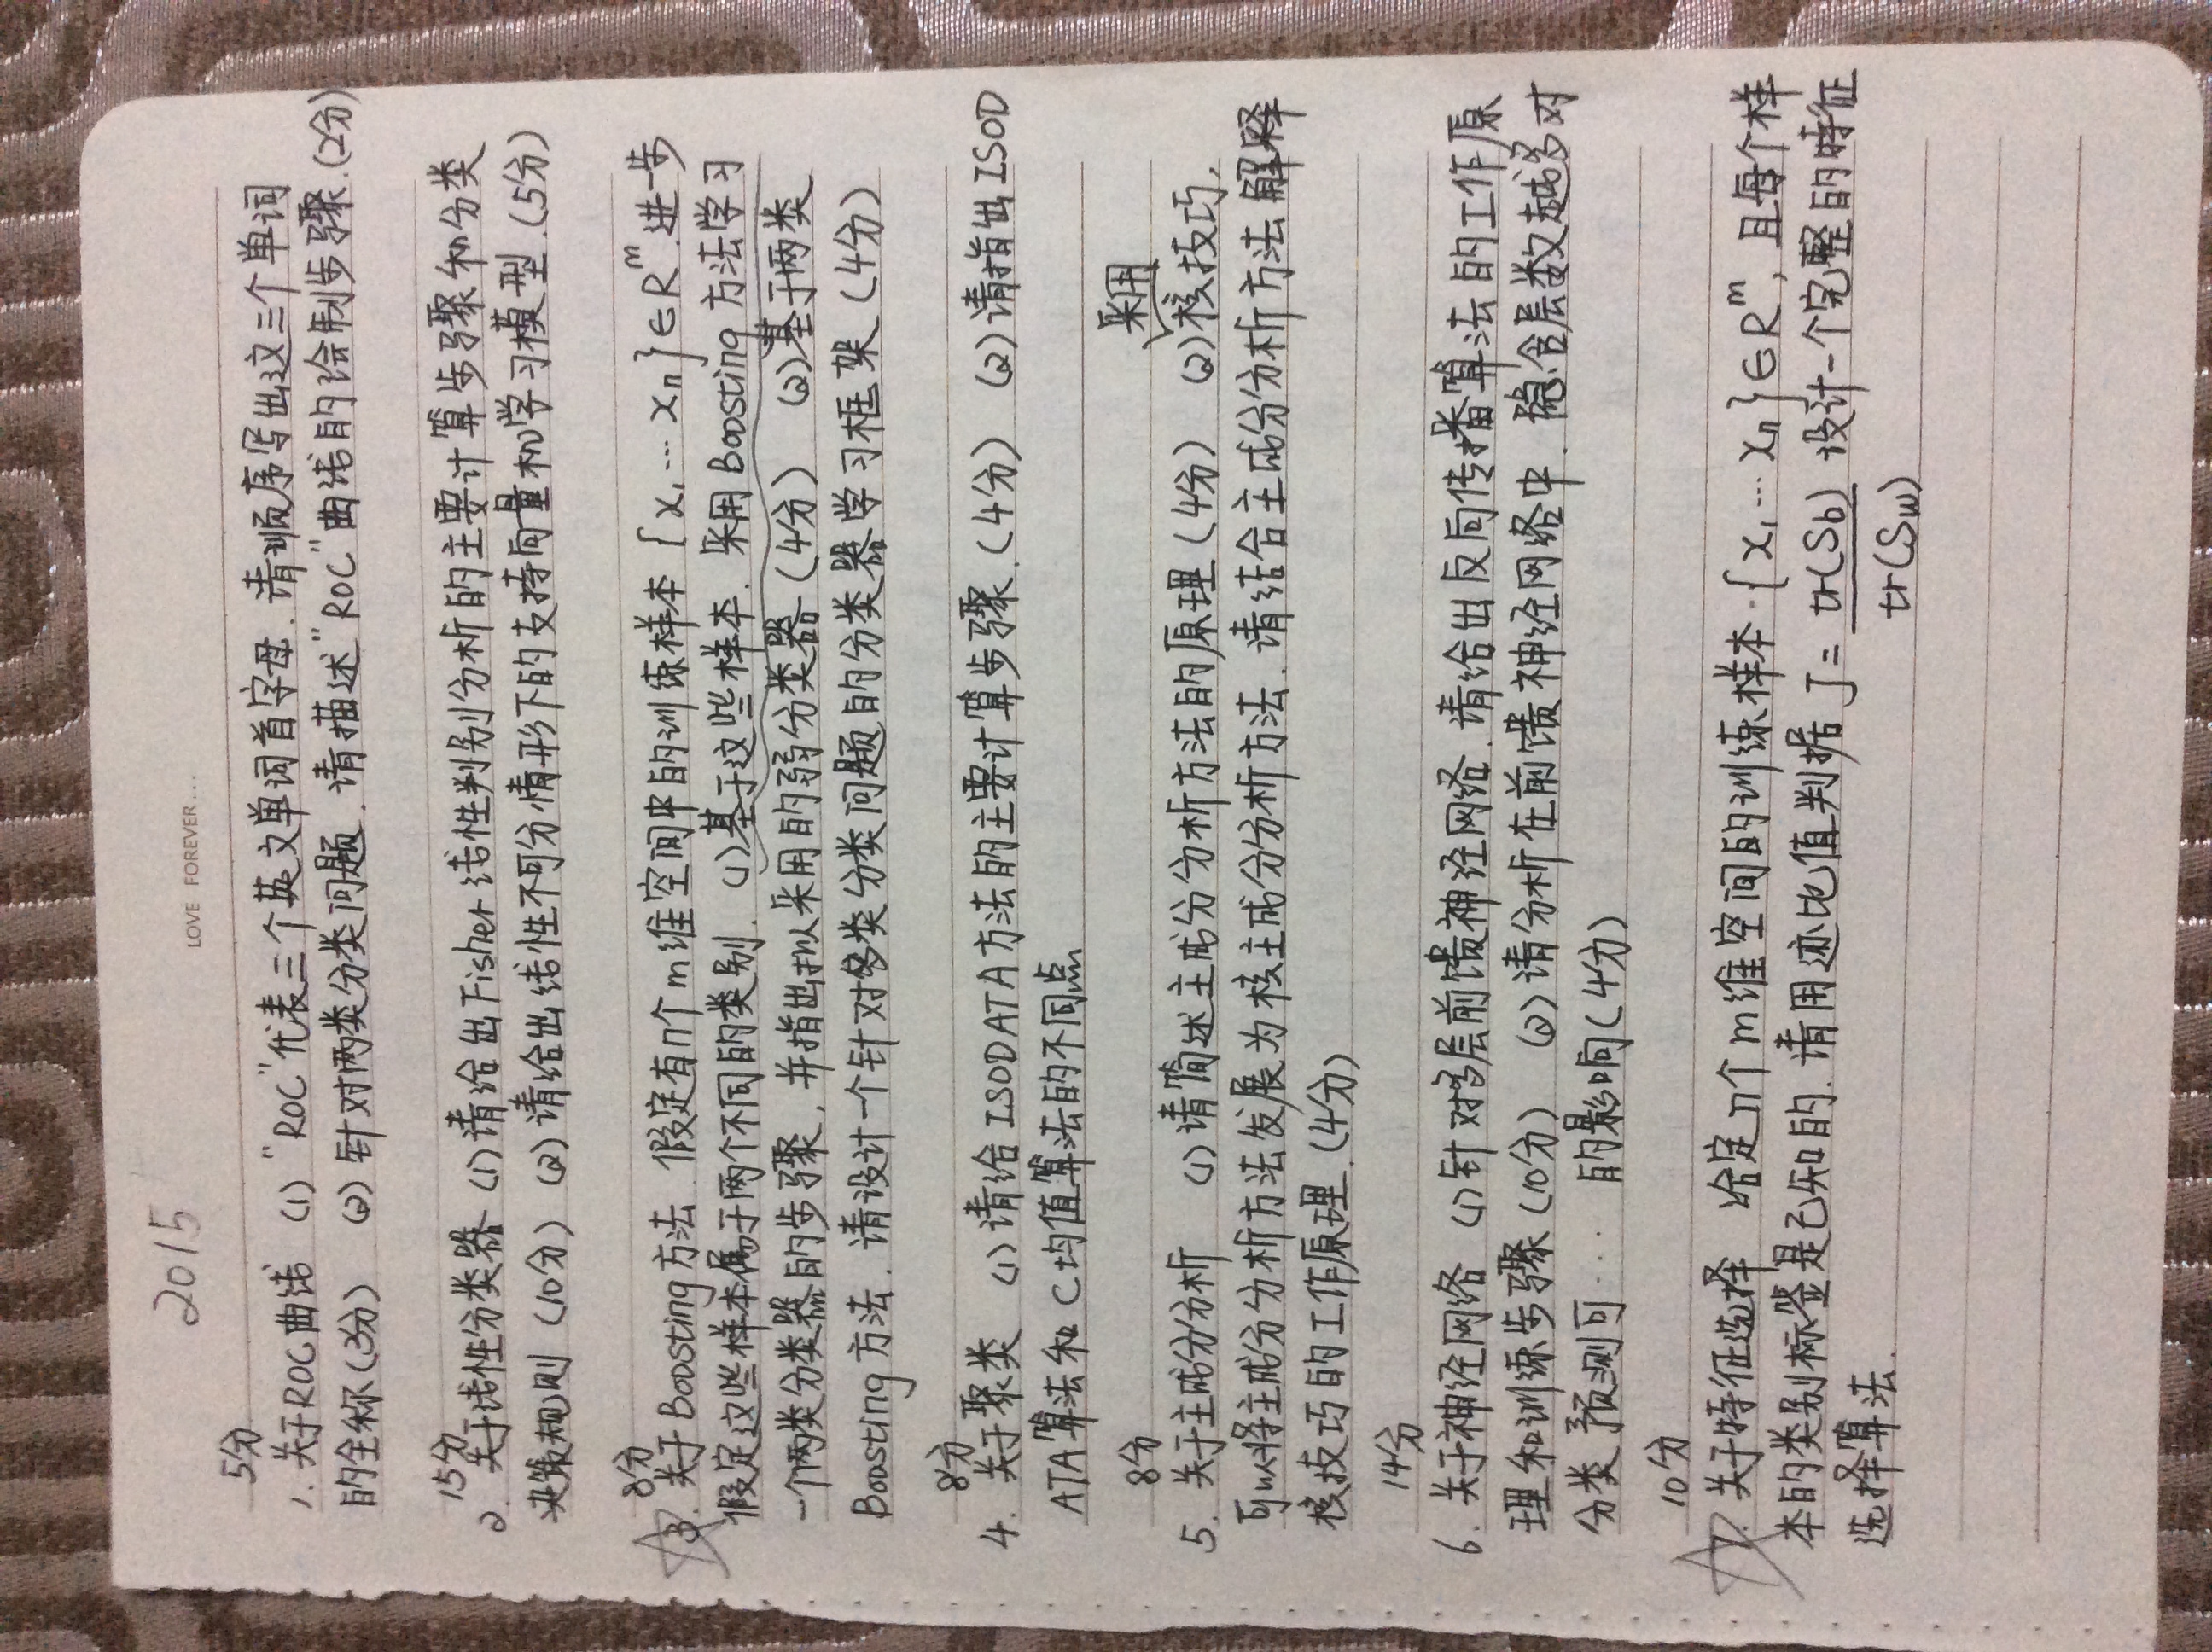 LOVE FOREVER...
2015
5分
1. 关于ROC曲线 (1) "ROC"代表三个英文单词首字母.请顺序写出这三个单词
的全称(3分) (2)针对两类分类问题.请描述"ROC"曲线的绘制步骤.(2分)
15分
2. 关于线性分类器 (1)请给出Fisher线性判别分析的主要计算步骤和分类
决策规则 (10分) (2)请给出线性不可分情形下的支持向量机学习模型.(5分)
8分
3. 关于Boosting方法.假定有n个m维空间中的训练样本{x1,...xn}∈R^m.进一步
假定这些样本属于两个不同的类别. (1)基于这些样本.采用Boosting方法学习
一个两类分类器的步骤,并指出拟采用的弱分类器(4分) (2)基于两类
Boosting方法.请设计一个针对多类分类问题的分类器学习框架(4分)
8分
4. 关于聚类 (1)请给ISODATA方法的主要计算步骤.(4分) (2)请指出ISOD
ATA算法和C均值算法的不同点
8分
采用
5. 关于主成分分析 (1)请简述主成分分析方法的原理(4分) (2)核技巧,
可以将主成分分析方法发展为核主成分分析方法.请结合主成分分析方法解释
核技巧的工作原理.(4分)
14分
6. 关于神经网络 (1)针对多层前馈神经网络.请给出反向传播算法的工作原
理和训练步骤(10分) (2)请分析在前馈神经网络中.隐含层数越多对
分类预测可... 的影响(4分)
10分
7. 关于特征选择 给定n个m维空间的训练样本.{x1...xn}∈R^m,且每个样
本的类别标签是已知的.请用迹比值判据 J= tr(Sb)/tr(Sw) 设计一个完整的特征
选择算法.